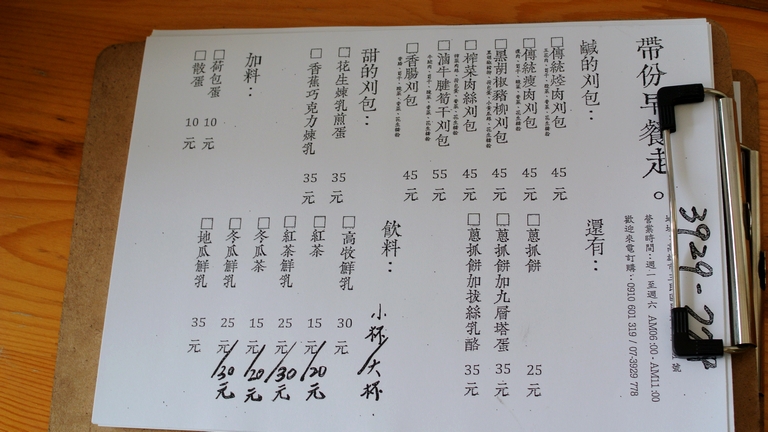 帶份早餐走。
營業時間：週一至週六 AM06:00 - AM11:00
歡迎來電訂購：0910 601 319 / 07-3929 778
鹹的刈包：
□傳統焢肉刈包 45元
□傳統瘦肉刈包 45元
□黑胡椒豬柳刈包 45元
□榨菜肉絲刈包 45元
□滷牛腱筍干刈包 55元
□香腸刈包 45元
甜的刈包：
□花生煉乳煎蛋 35元
□香蕉巧克力煉乳 35元
加料：
□荷包蛋 10元
□散蛋 10元
還有：
□蔥抓餅 25元
□蔥抓餅加九層塔蛋 35元
□蔥抓餅加拔絲乳酪 35元
飲料： 小杯/大杯
□高牧鮮乳 30元
□紅茶 15元/20元
□紅茶鮮乳 25元/30元
□冬瓜茶 15元/20元
□冬瓜鮮乳 25元/30元
□地瓜鮮乳 35元